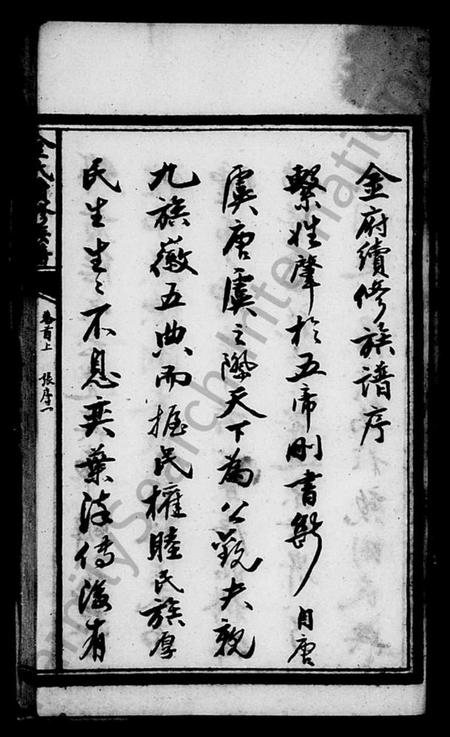 金府續修族譜序
繫姓肇於五帝刪書斷自唐
虞唐虞之際天下為公觀夫親
九族徽五典而握民權睦民族厚
民生生々不息奕葉流傳後有
金氏 修族譜
卷首上 張序一
FamilySearch International